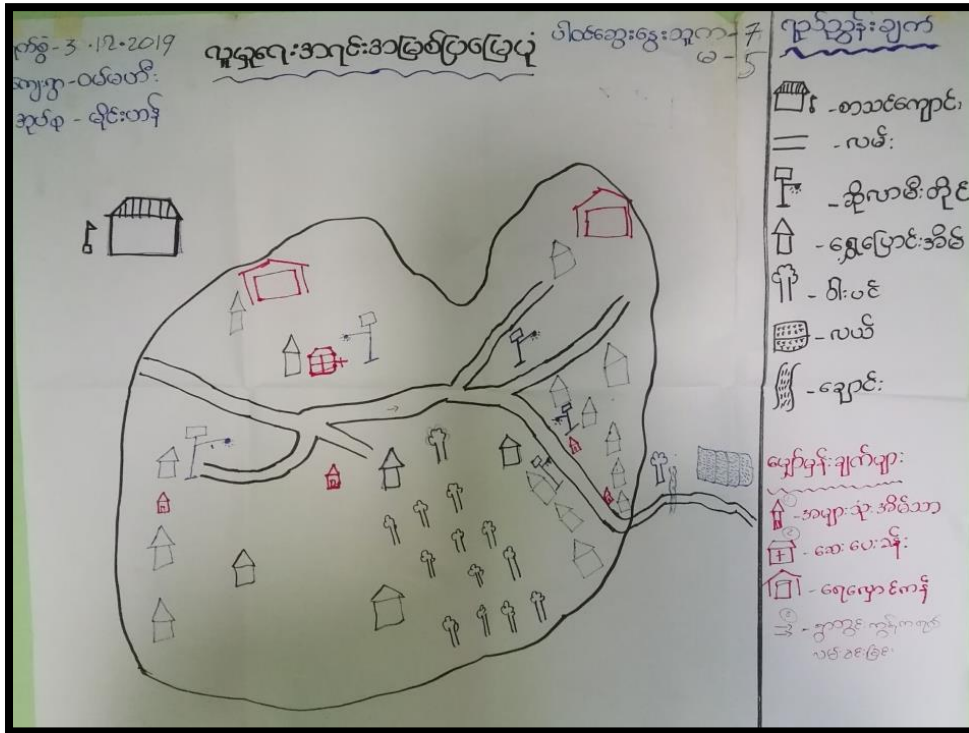 ရက်စွဲ-3.12.2019
ကျေးရွာ-ဝမ်မဟီး
အုပ်စု - မိုင်းဟန်
လူမှုရေးအရင်းအမြစ်ပြမြေပုံ
ပါဝင်ဆွေးနွေးသူ ကျ - 7
မ - 5
ရည်ညွှန်းချက်
-စာသင်ကျောင်း
-လမ်း
-ဆိုလာမီးတိုင်
-ရွှေ့ပြောင်းအိမ်
-ဝါးပင်
-လယ်
-ချောင်း
မျှော်မှန်းချက်များ
-အများသုံးအိမ်သာ
-ဆေးပေးခန်း
-ရေလှောင်ကန်
-ရွာတွင်း ကွန်ကရစ်
လမ်းခင်းခြင်း